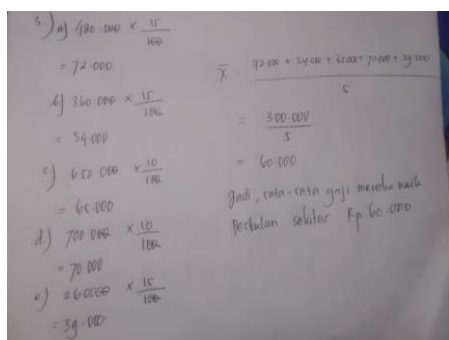 3.) a) 480.000 × 15/100
= 72.000
b) 360.000 × 15/100
= 54.000
c) 650.000 × 10/100
= 65.000
d.) 700.000 × 10/100
= 70.000
e) 260000 × 15/100
= 39.000
x̄ = 72.000 + 54.000 + 65.000 + 70.000 + 39.000 / 5
= 300.000 / 5
= 60.000
Jadi, rata-rata gaji mereka naik
Perbulan sekitar Rp 60.000